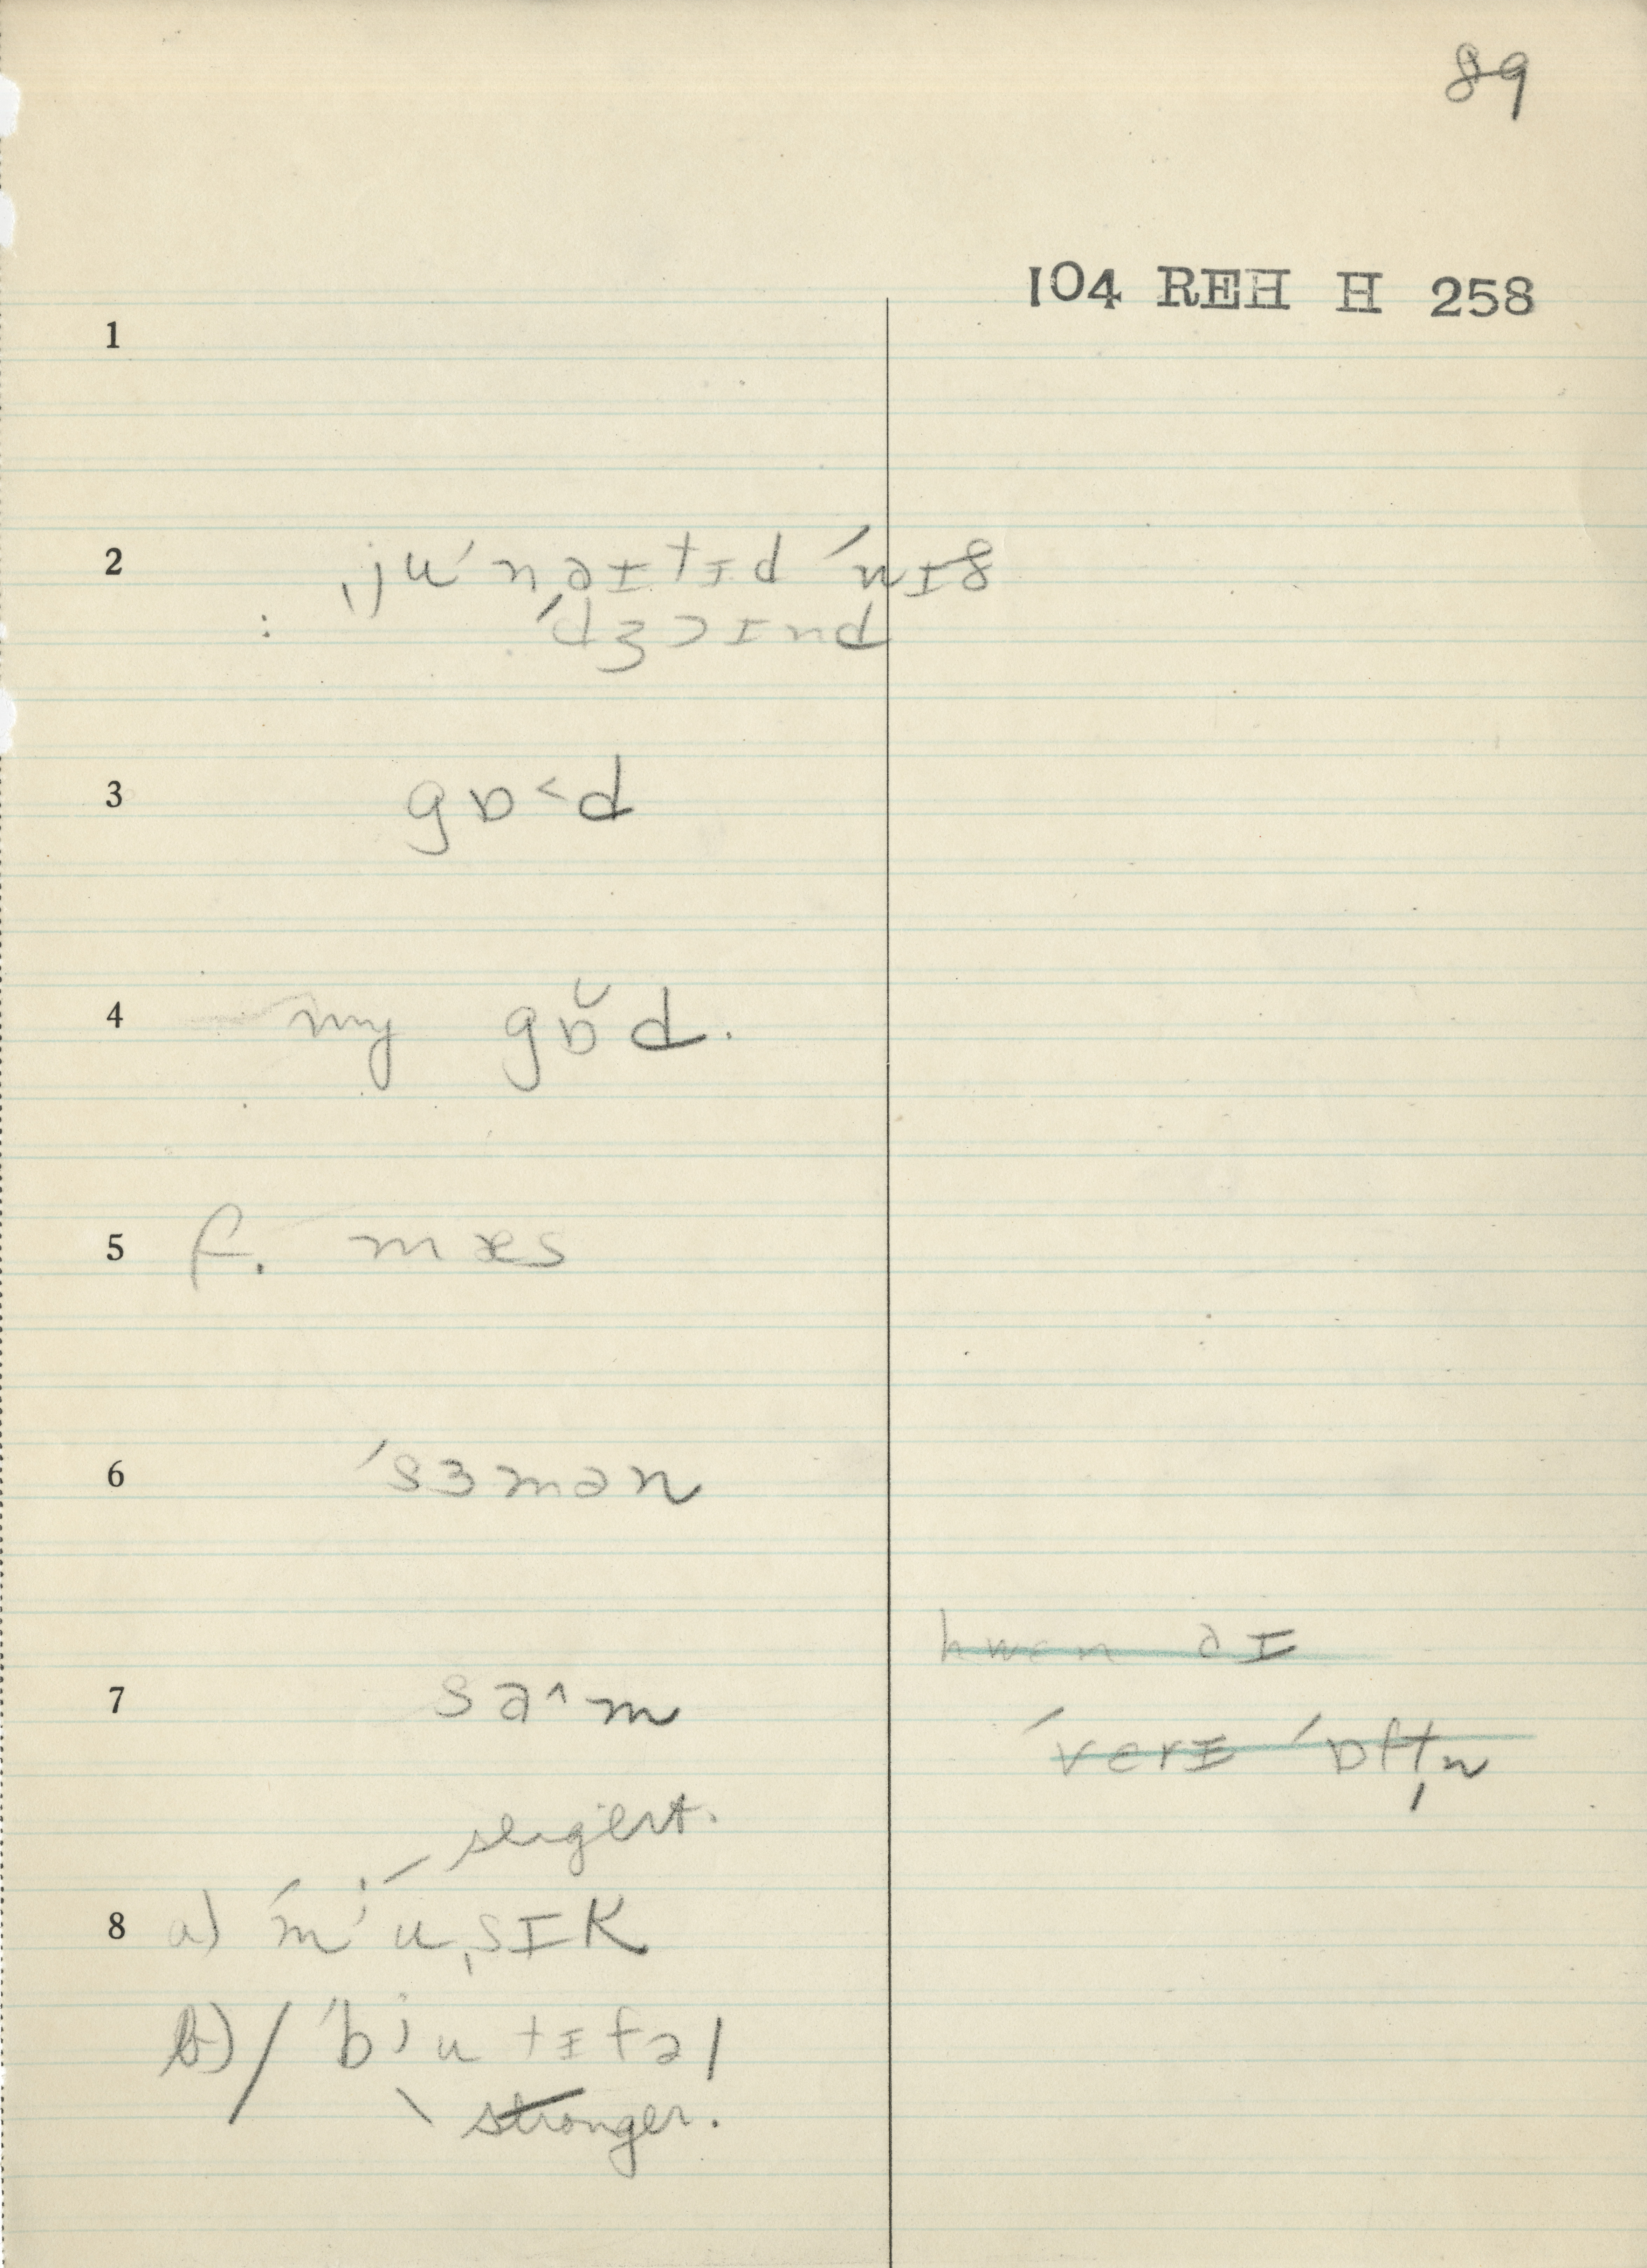 89
104 REH H 258
1
2 ˌju'nɑɪtɪd 'nɪ8
: 'dʒɔɪnd
3 gɒ˂d
4 my gɒ̆d.
5 f. mæs
6 'sɜmən
7 sɑ˄m
hwen ðɪ
'verɪ 'ɒftn̩
8 a) 'mʲuˌsɪk
b) / 'bʲutɪfəl
stronger.